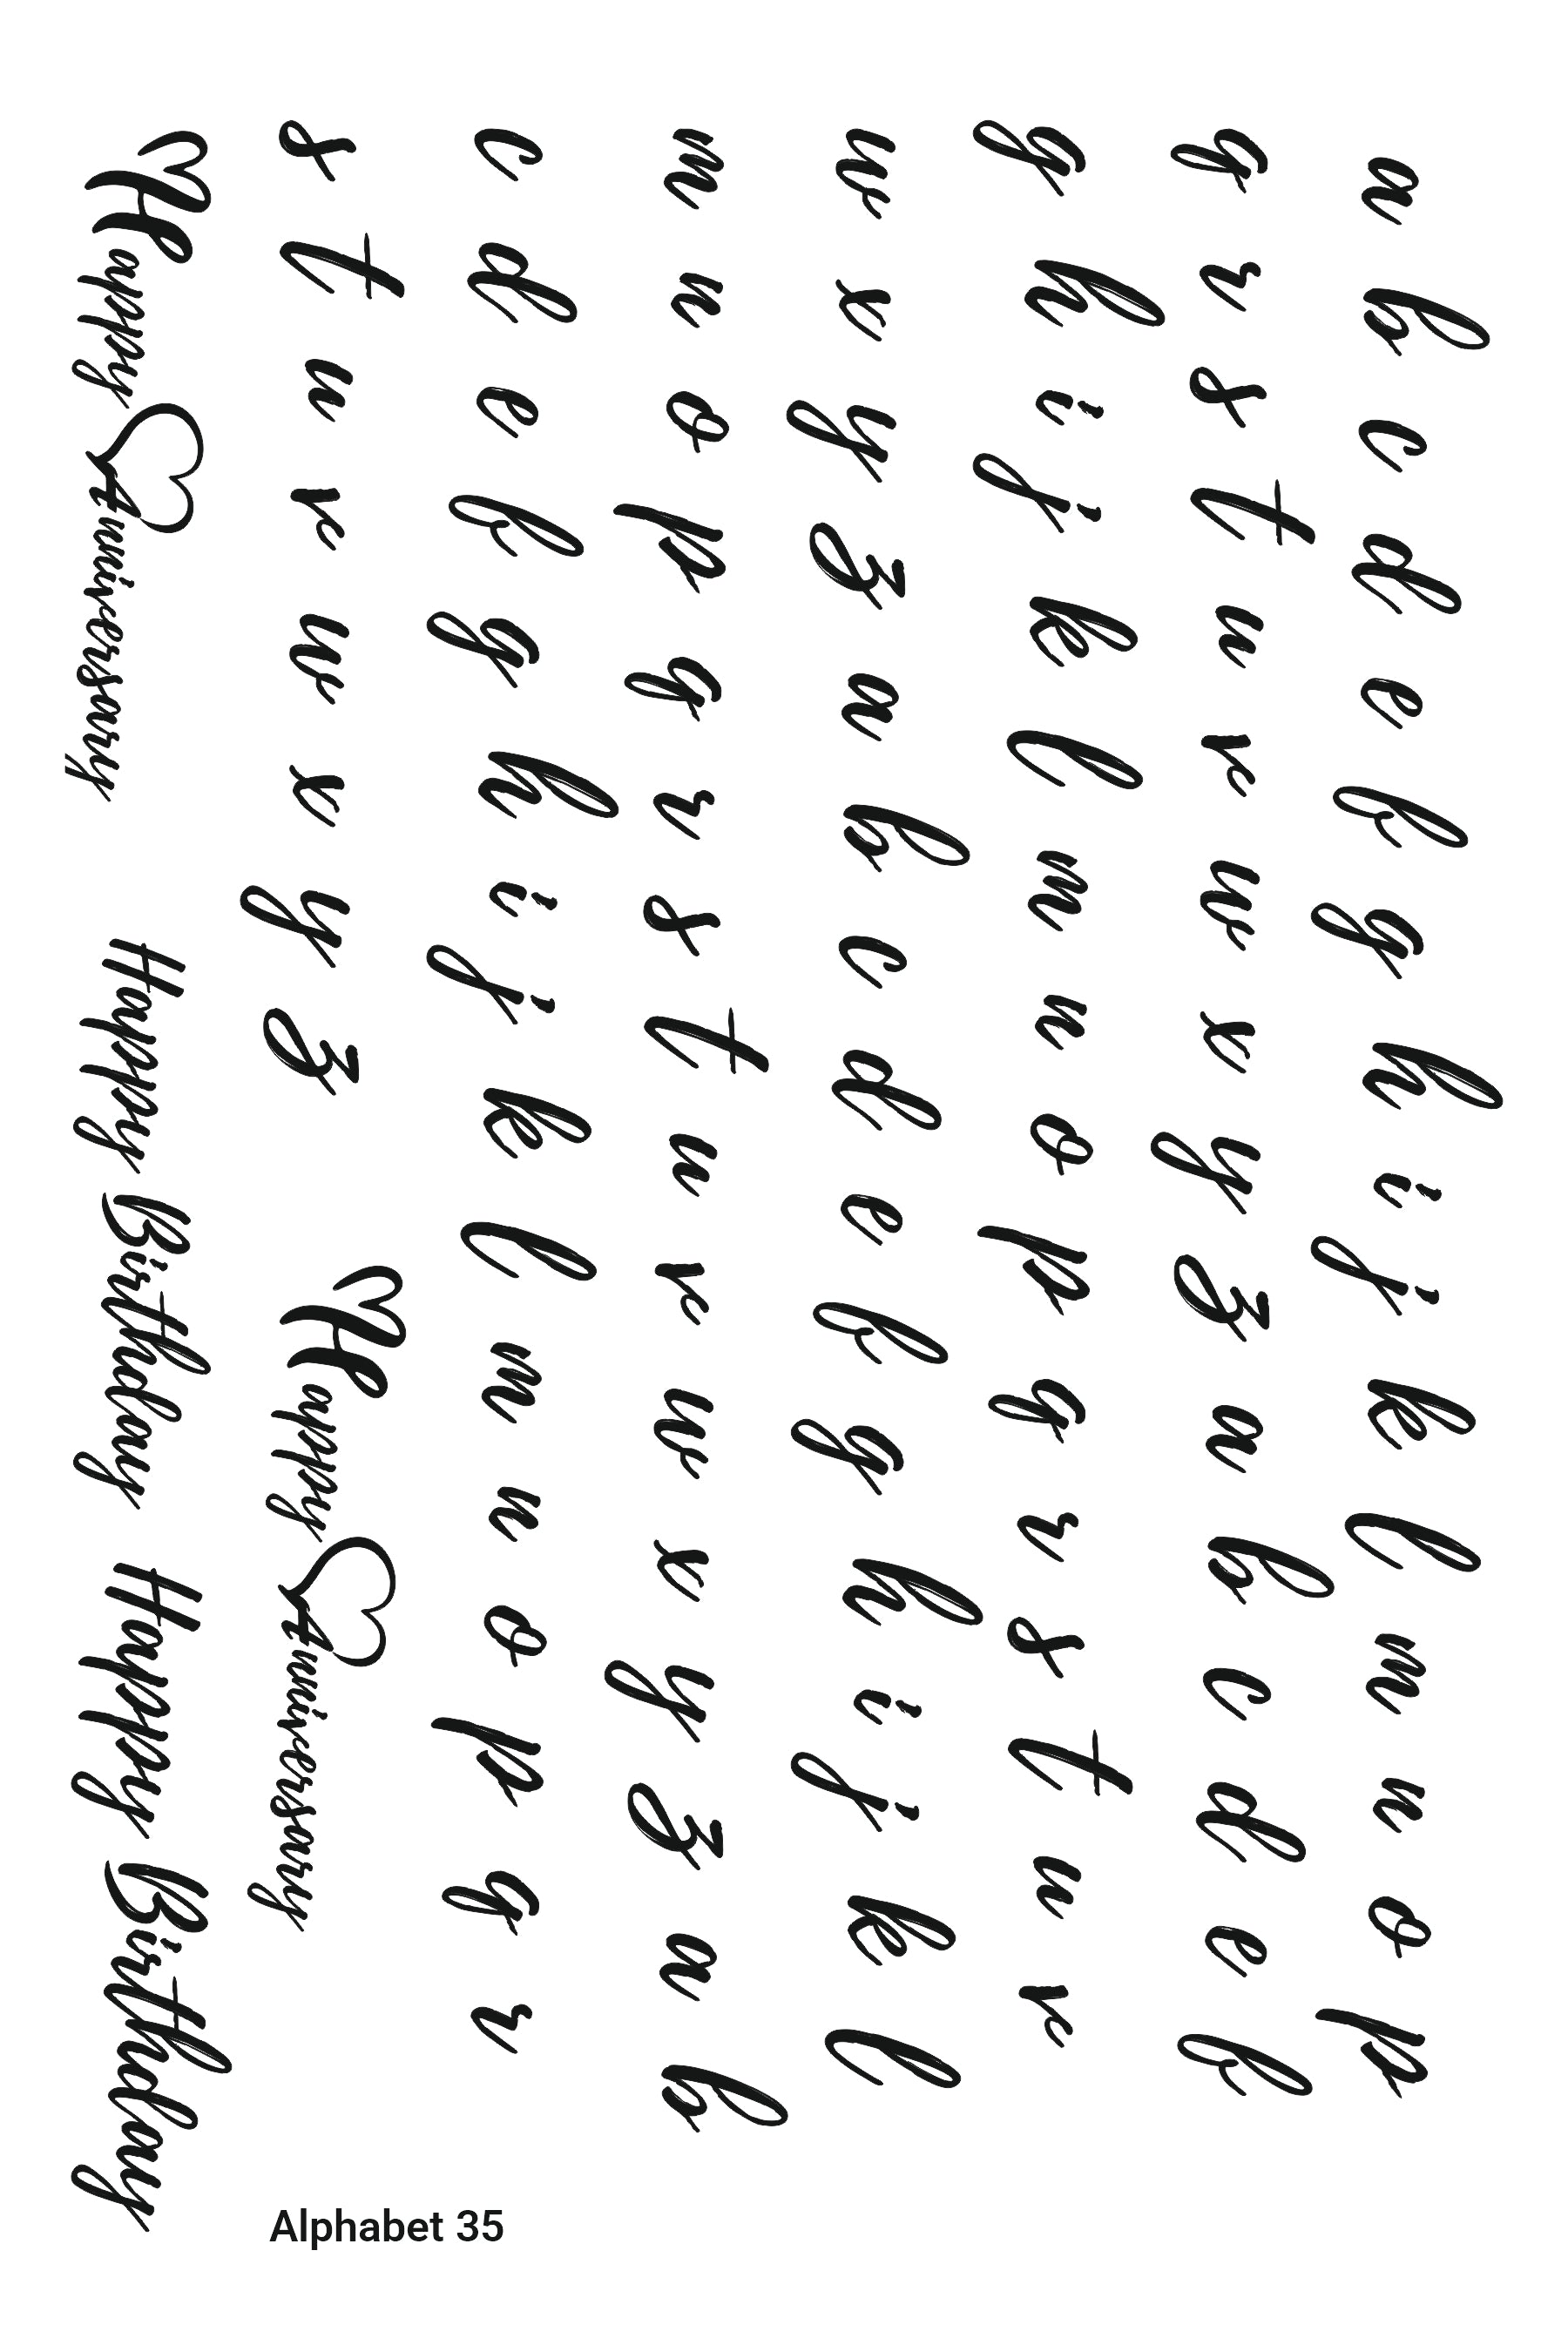 a b c d e f g h i j k l m n o p
q r s t u v w x y z a b c d e f
g h i j k l m n o p q r s t u v
w x y z a b c d e f g h i j k l
m n o p q r s t u v w x y z a b
c d e f g h i j k l m n o p q r
s t u v w x y z Happy Anniversary
Happy Anniversary Happy Birthday Happy Birthday
Alphabet 35